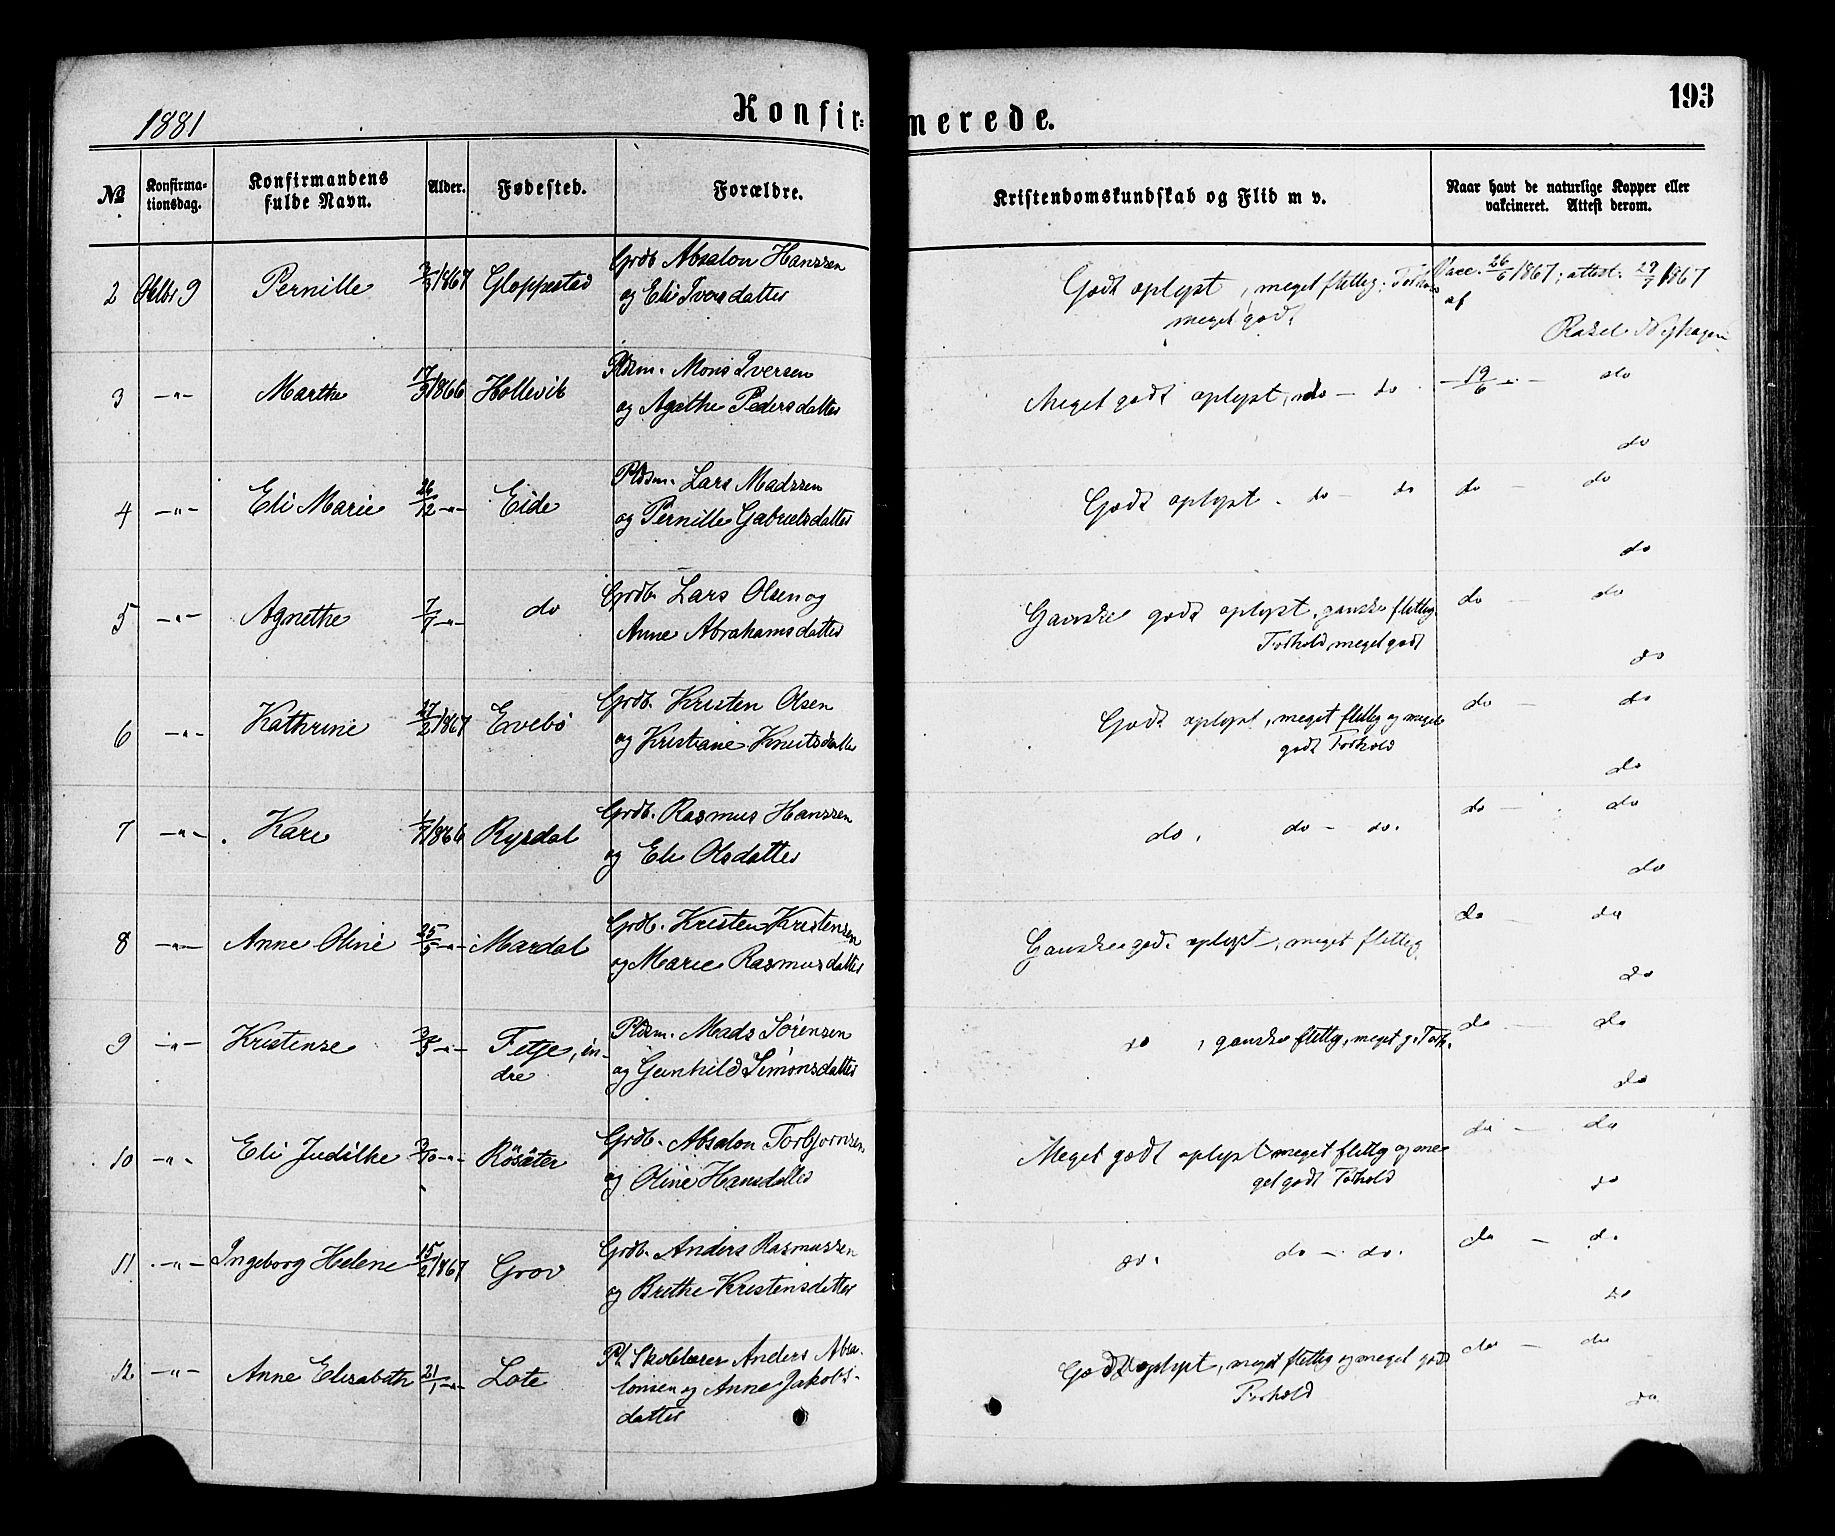 1881
Konfir-
merede.
193
No
Konfirma-
tionsdag.
Konfirmandens
fulde Navn.
Alder.
Fødested.
Forældre.
Kristendomskundskab og Flid m v.
Naar havt de naturlige Kopper eller
vakcineret. Attest derom.
2 Oktbr 9 Pernille 1867 Gloppestad Grdb Absalon Hanssen
og Eli Iversdatter
Godt oplyst, meget flittig; Forhold
meget godt
Vacc. 26/6 1867; attest. 29/7 1867
af
3 -"- Marthe 17/3 1866 Hollevik Pldsm. Mons Iversen
og Agathe Pedersdatter
Meget godt oplyst, do - do
- 19/6 - do
do
4 -"- Eli Marie 26/12 -"- Eide Pldsm. Lars Madssen
og Pernille Gabrielsdatter
Godt oplyst. do - do do - do
do
5 -"- Agnethe 7/7 -"- do Grdb. Lars Olsen og
Anne Abrahamsdatter
Ganske godt oplyst, ganske flittig
Forhold meget godt
do - do
do
6 -"- Kathrine 17/2 1867 Evebø Grdb. Kristen Olsen
og Kristiane Knutsdatter
Godt oplyst, meget flittig og meget
godt Forhold
do - do
do
7 -"- Kari 1866 Rysdal Grdb. Rasmus Hanssen
og Eli Olsdatter
do. do - do. do - do
do
8 -"- Anne Oline 25/5 -"- Mardal Grdb. Kristen Kristensen
og Marie Rasmusdatter
Ganske godt oplyst, meget flittig
do - do
do
9 -"- Kristense -"- Fetje, in-
dre
Pldsm. Mads Sørensen
og Gunhild Simonsdatter
do, ganske flittig, meget g. Forh.
do - do
do
10 -"- Eli Judithe -"- Røsæter Grdb. Absalon Torbjørnsen
og Oline Hansdatter
Meget godt oplyst meget flittig og me-
get godt Forhold
do - do
do
11 -"- Ingeborg Helene 15/2 1867 Grov Grdb. Anders Rasmussen
og Brithe Kristensdatter
do. do - do. do - do
do
12 -"- Anne Elisabeth 21/1 -"- Lote Pl. Skolelærer Anders Absa-
lonsen og Anne Jakobs-
datter
Godt oplyst, meget flittig og meget godt
Forhold
do - do
do